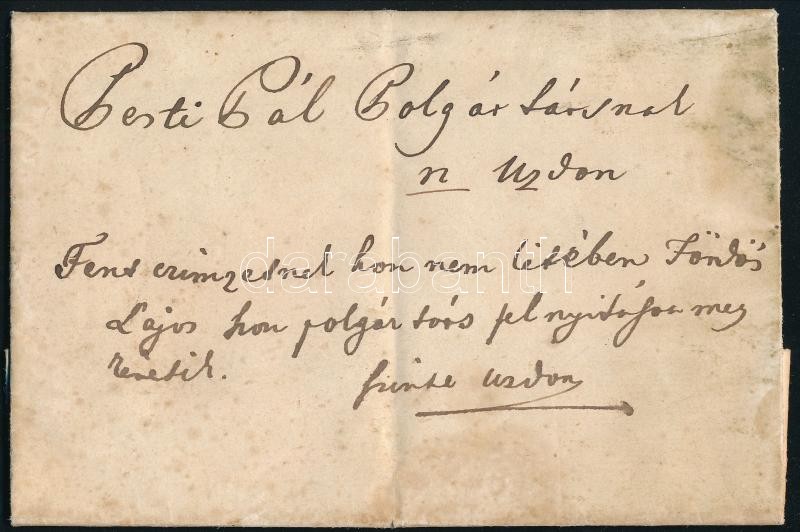 Pesti Pál Polgár társnak
n Uzdon
Fent czimzesnek hon nem létében Fördös
Lajos hon polgár társ fel nyitásra meg
kéretik.
szinte Uzdon
darabanth